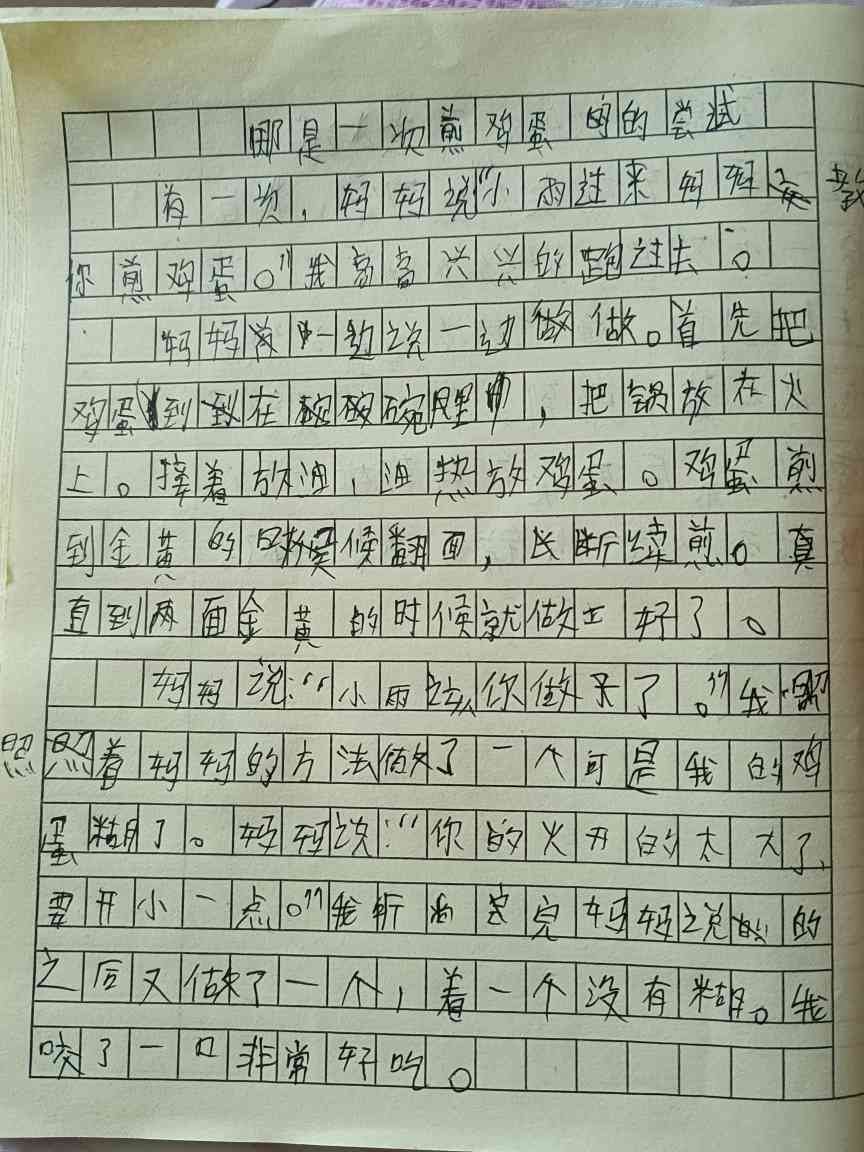 哪是一次煎鸡蛋的的尝试
有一次，妈妈说“小雨过来妈妈教
你煎鸡蛋。”我高高兴兴的跑过去。
妈妈一边说一边做做。首先把
鸡蛋到到在碗碗碗里，把锅放在火
上。接着放油，油热放鸡蛋。鸡蛋煎
到金黄的时候翻面，断续煎。真
直到两面金黄的时候就做好了。
妈妈说：“小雨该你做来了。”我
照照着妈妈的方法做了一个可是我的鸡
蛋糊了。妈妈说：“你的火开的太大了、
要开小一点。”我听完妈妈说的
之后又做了一个，着一个没有糊。我
咬了一口非常好吃。